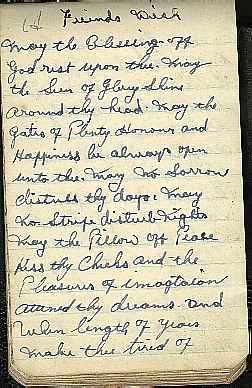 14 Friends Wish
May the Blessing off
God rest upon thee. May
the Sun of Glory Shine
around thy head. May the
gates of Plenty Honour and
Happiness be always open
unto thee. May no Sorrow
distress thy days. May
no Strife disturb Nights
May the Pillow off Peace
Kiss thy Cheeks and the
Pleasures of imagtaion
attend thy dreams. and
When length of years
make thee tired of